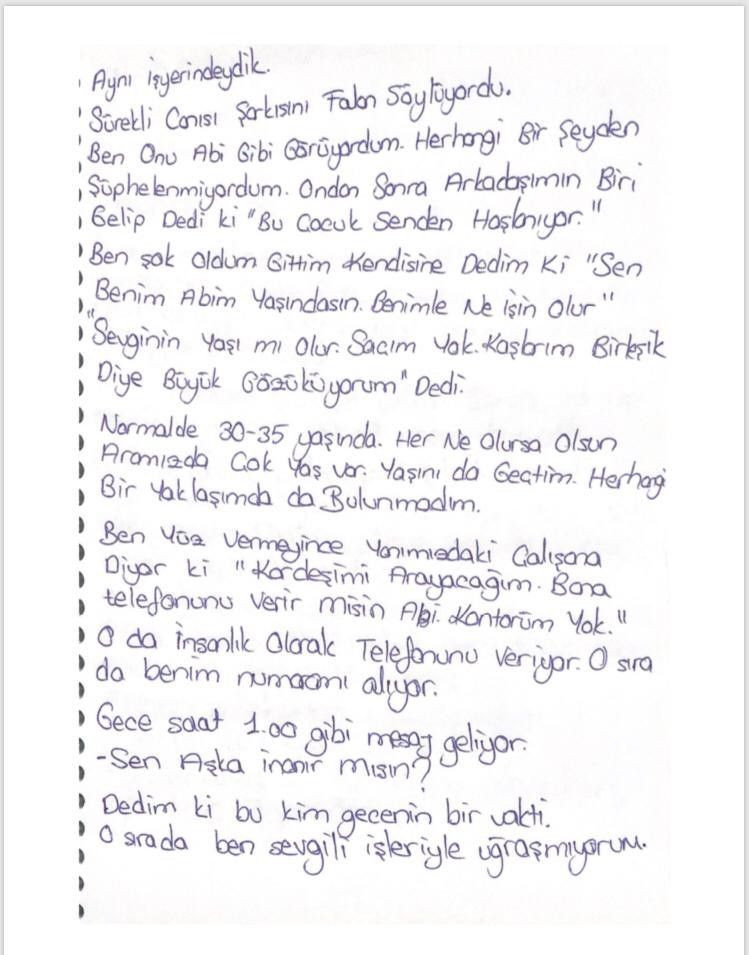 Aynı işyerindeydik.
Sürekli Canısı Şarkısını Falan Söylüyordu.
Ben Onu Abi Gibi Görüyordum. Herhangi Bir Şeyden
Şüphelenmiyordum. Ondan Sonra Arkadaşımın Biri
Gelip Dedi ki "Bu Çocuk Senden Hoşlanıyor."
Ben şok oldum Gittim Kendisine Dedim Ki "Sen
Benim Abim Yaşındasın. Benimle Ne işin Olur"
"Sevginin Yaşı mı Olur. Saçım Yok. Kaşlarım Birleşik
Diye Büyük Gözüküyorum" Dedi.
Normalde 30-35 yaşında. Her Ne Olursa Olsun
Aramızda Çok Yaş var. Yaşını da Geçtim. Herhagi
Bir Yaklaşımda da Bulunmadım.
Ben Yüz Vermeyince Yanımızdaki Çalışana
Diyor ki "Kardeşimi Arayacağım. Bana
telefonunu Verir misin Abi. Kontörüm Yok."
O da İnsanlık Olarak Telefonunu Veriyor. O sıra
da benim numaramı alıyor.
Gece saat 1.00 gibi mesaj geliyor.
-Sen Aşka inanır mısın?
Dedim ki bu kim gecenin bir vakti.
O sırada ben sevgili işleriyle uğraşmıyorum.